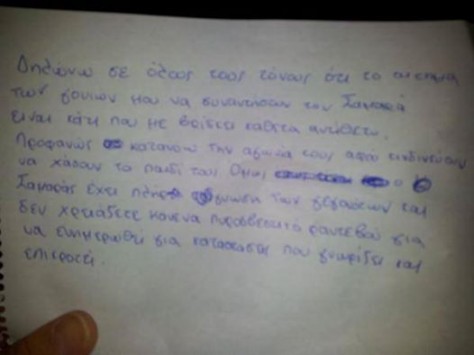 Δηλωνω σε όλους τους τόνους ότι το αιτημα
των γονιων μου να συναντησουν τον Σαμαρά
ειναι κάτι που με βρίσκει κάθετα αντίθετο.
Προφανώς κατανοω την αγωνία τους αφου κινδυνεύουν
να χάσουν το παιδί τους Όμως ο
Σαμαράς έχει πλήρη γνωση των γεγονοτων και
δεν χρειάζετε κανενα πυροσβεστικό ραντεβού για
να ενημερωθεί για καταστασεις που γνωρίζει και
επικροτεί.